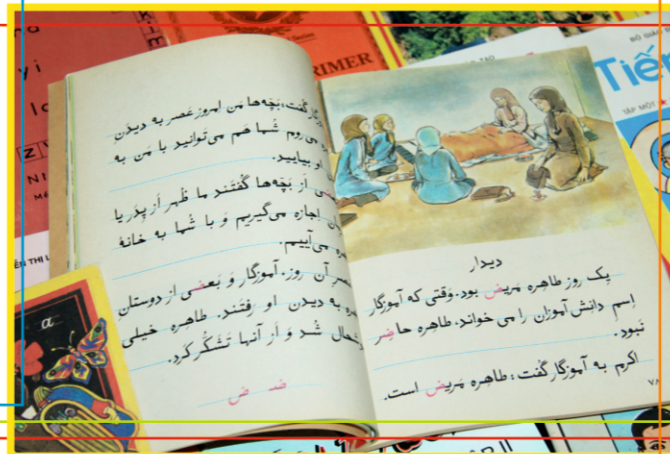 RIMER
BỘ GIÁO
Tiế
TẬP MỘT
دیدار
یک روز طاهره مَریض بود. وَقتی که آموزگار
اِسمِ دانِش آموزان را می خواند، طاهره حاضِر
نَبود.
اکرم به آموزگار گُفت: طاهره مَریض است.
۷۸
گُفت: بَچّه‌ها مَن اِمروز عَصر به دیدَنِ
می رَوم شُما هَم می‌تَوانید با مَن به
او بیایید.
از بَچّه‌ها گُفتَند ما ظُهر از پِدَر یا
اِجازه می‌گیریم وَ با شُما به خانهٔ
می‌آییم.
آن روز، آموزگار وَ بَعضی از دوستان
به دیدَن او رَفتَند. طاهره خیلی
شُد وَ از آنها تَشَکُّر کَرد.
ضـ ض